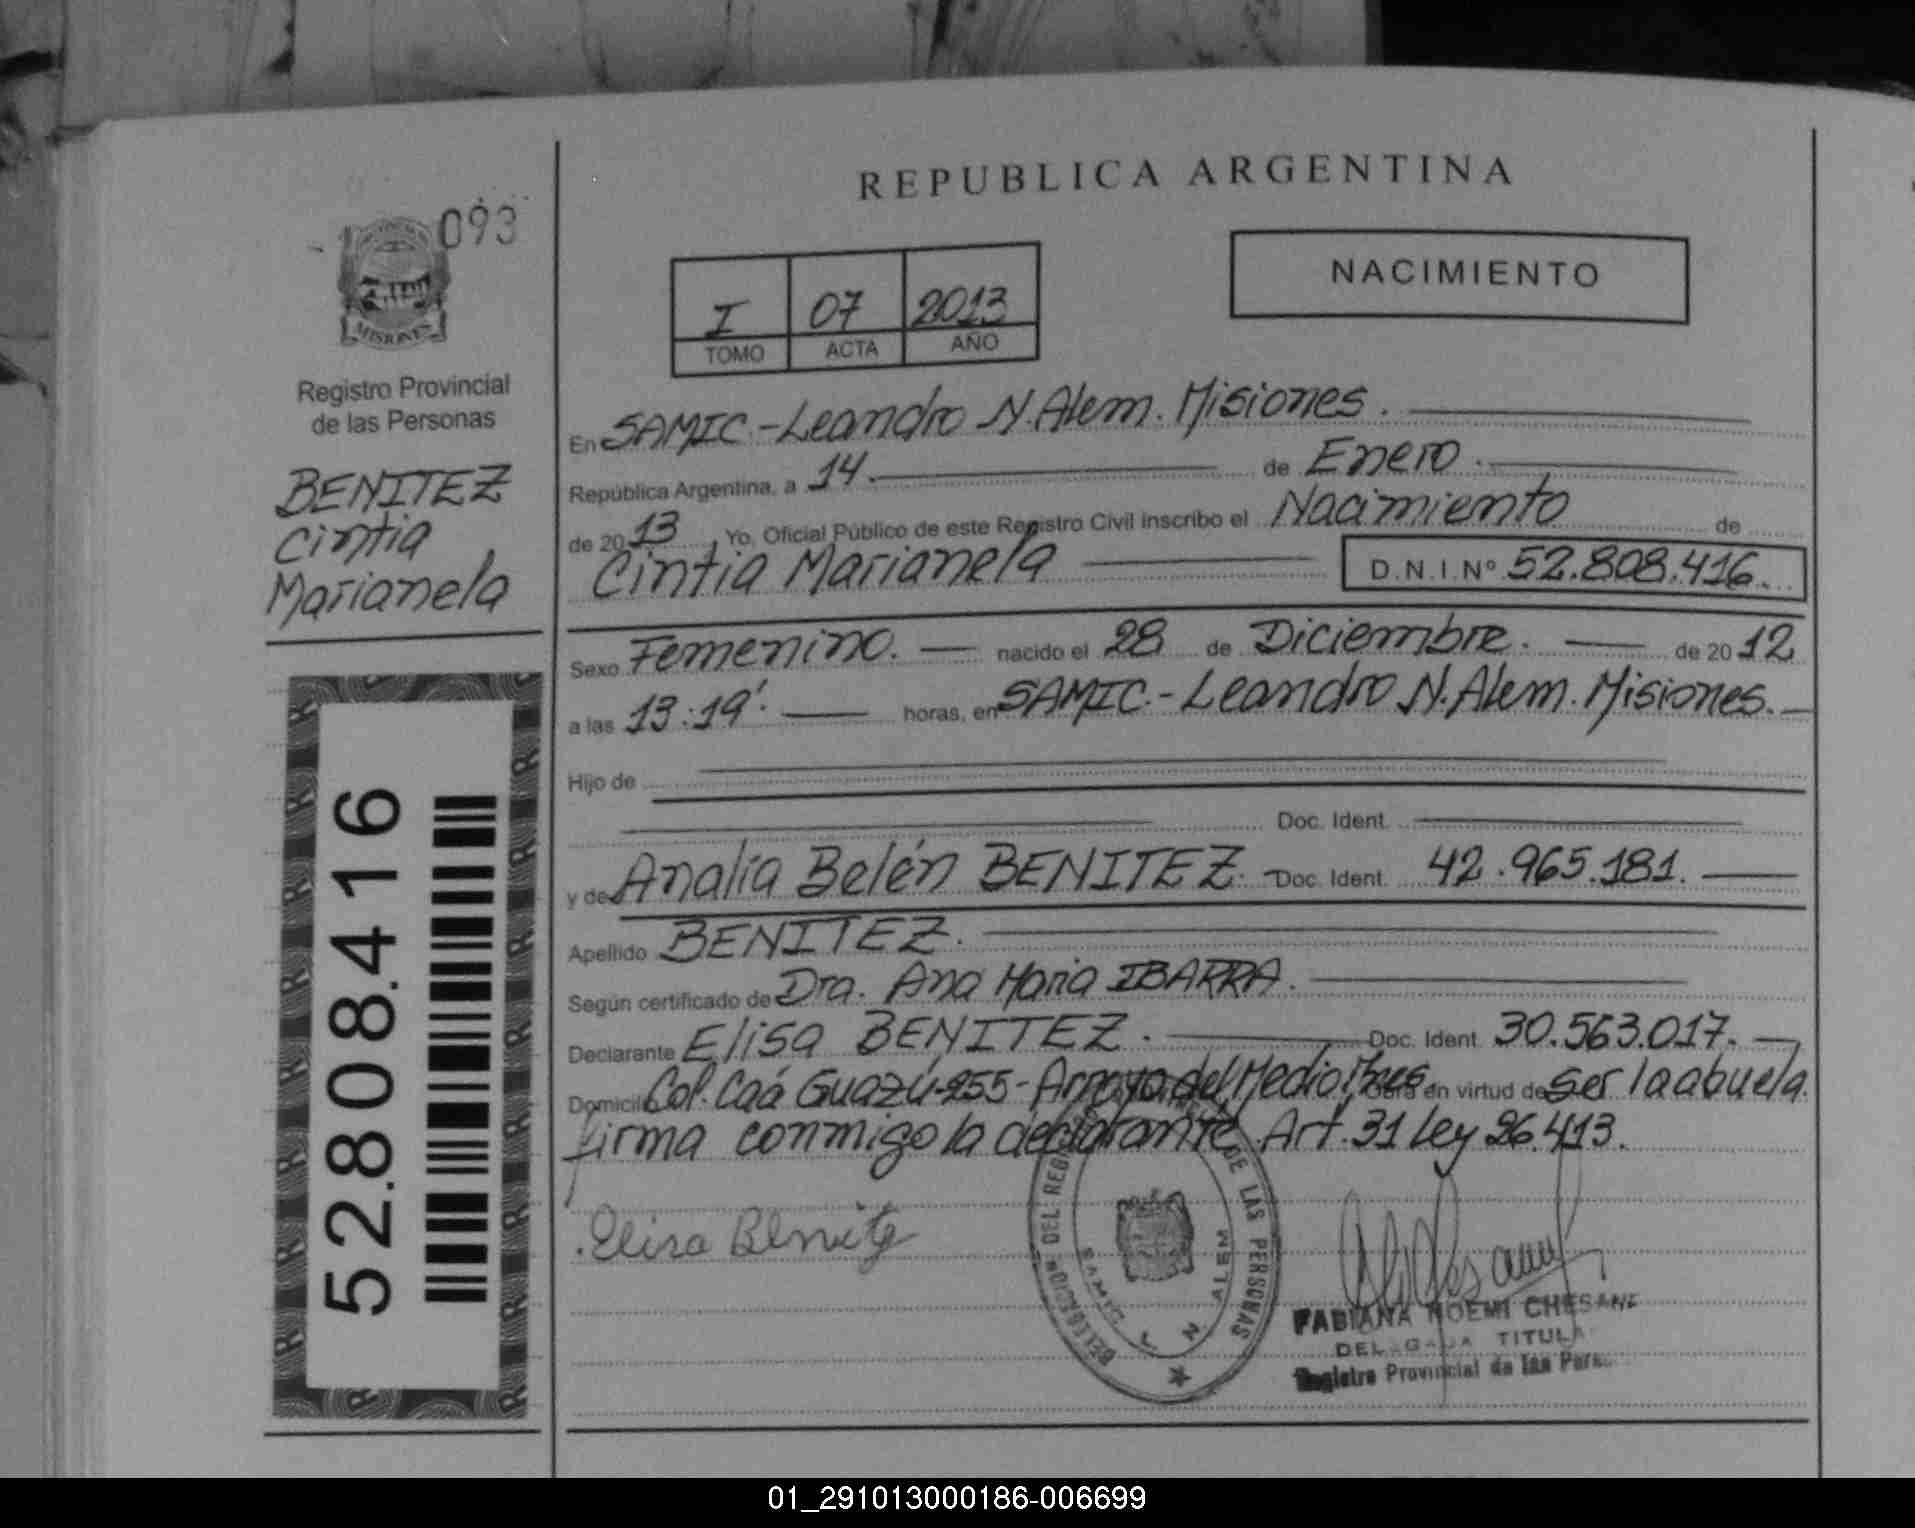 REPUBLICA ARGENTINA
093
MISIONES
Registro Provincial
de las Personas
BENITEZ
Cintia
Marianela
52.808.416
I 07 2013
TOMO ACTA AÑO
NACIMIENTO
En SAMIC.-Leandro N.Alem. Misiones.
República Argentina, a 14. de Enero.
de 2013, Yo, Oficial Público de este Registro Civil inscribo el Nacimiento de
Cintia Marianela D.N.I.Nº 52.808.416.
Sexo Femenino. nacido el 28 de Diciembre. de 2012
a las 13:19'. horas, en SAMIC.- Leandro N.Alem. Misiones.
Hijo de
Doc. Ident.
y de Analía Belén BENITEZ. Doc. Ident. 42.965.181.
Apellido BENITEZ.
Según certificado de Dra. Ana Maria IBARRA.
Declarante Elisa BENITEZ. Doc. Ident. 30.563.017.
Domicilio Col. Caá Guazú-255-Arroyo del Medio, Mnes. Obra en virtud de ser la abuela.
firma conmigo la declarante. Art. 31 Ley 26.413.
Elisa Benitez
DELEGACION DEL REGISTRO DE LAS PERSONAS
SAMIC L N ALEM
FABIANA NOEMI CHESANI
DELEGADA TITULAR
Registro Provincial de las Pers
01_291013000186-006699